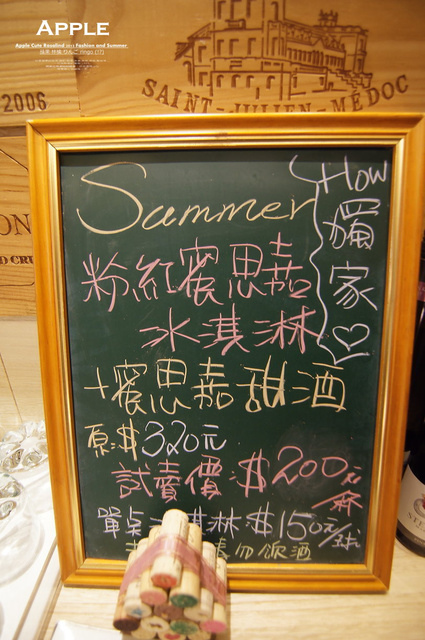 APPLE
Apple Cute Rosalind 2011 Fashion and Summer
2006
SAINT-JULIEN-MÉDOC
ON
D CRU
Summer
How
獨家♡
粉紅蜜思嘉
冰淇淋
+蜜思嘉甜酒
原:$320元
試賣價:$200元/杯
單點 淇淋$150元/球
加 酒